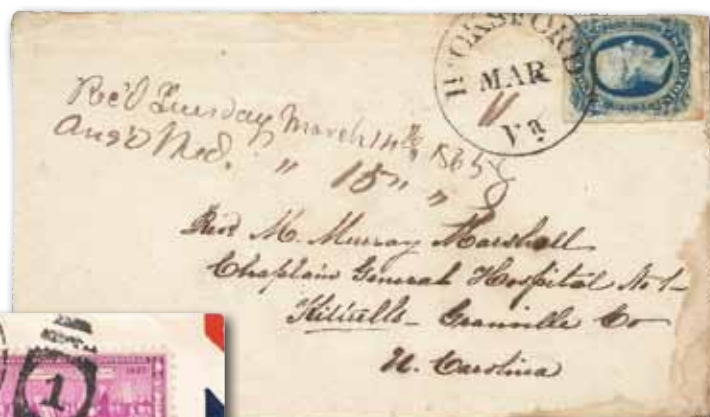 HICKSFORD
MAR
11
Va
Rec'd Tuesday March 14th 1865
Ans'd Wed. " 15 " "
Rev M. Murray Marshall
Chaplain General Hospital No 1-
Kittrells- Granville Co
N. Carolina
1